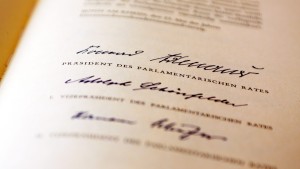 Konrad Adenauer
PRÄSIDENT DES PARLAMENTARISCHEN RATES
Adolph Schönfelder
I. VIZEPRÄSIDENT DES PARLAMENTARISCHEN RATES
Hermann Schäfer
II. VIZEPRÄSIDENT DES PARLAMENTARISCHEN RATES